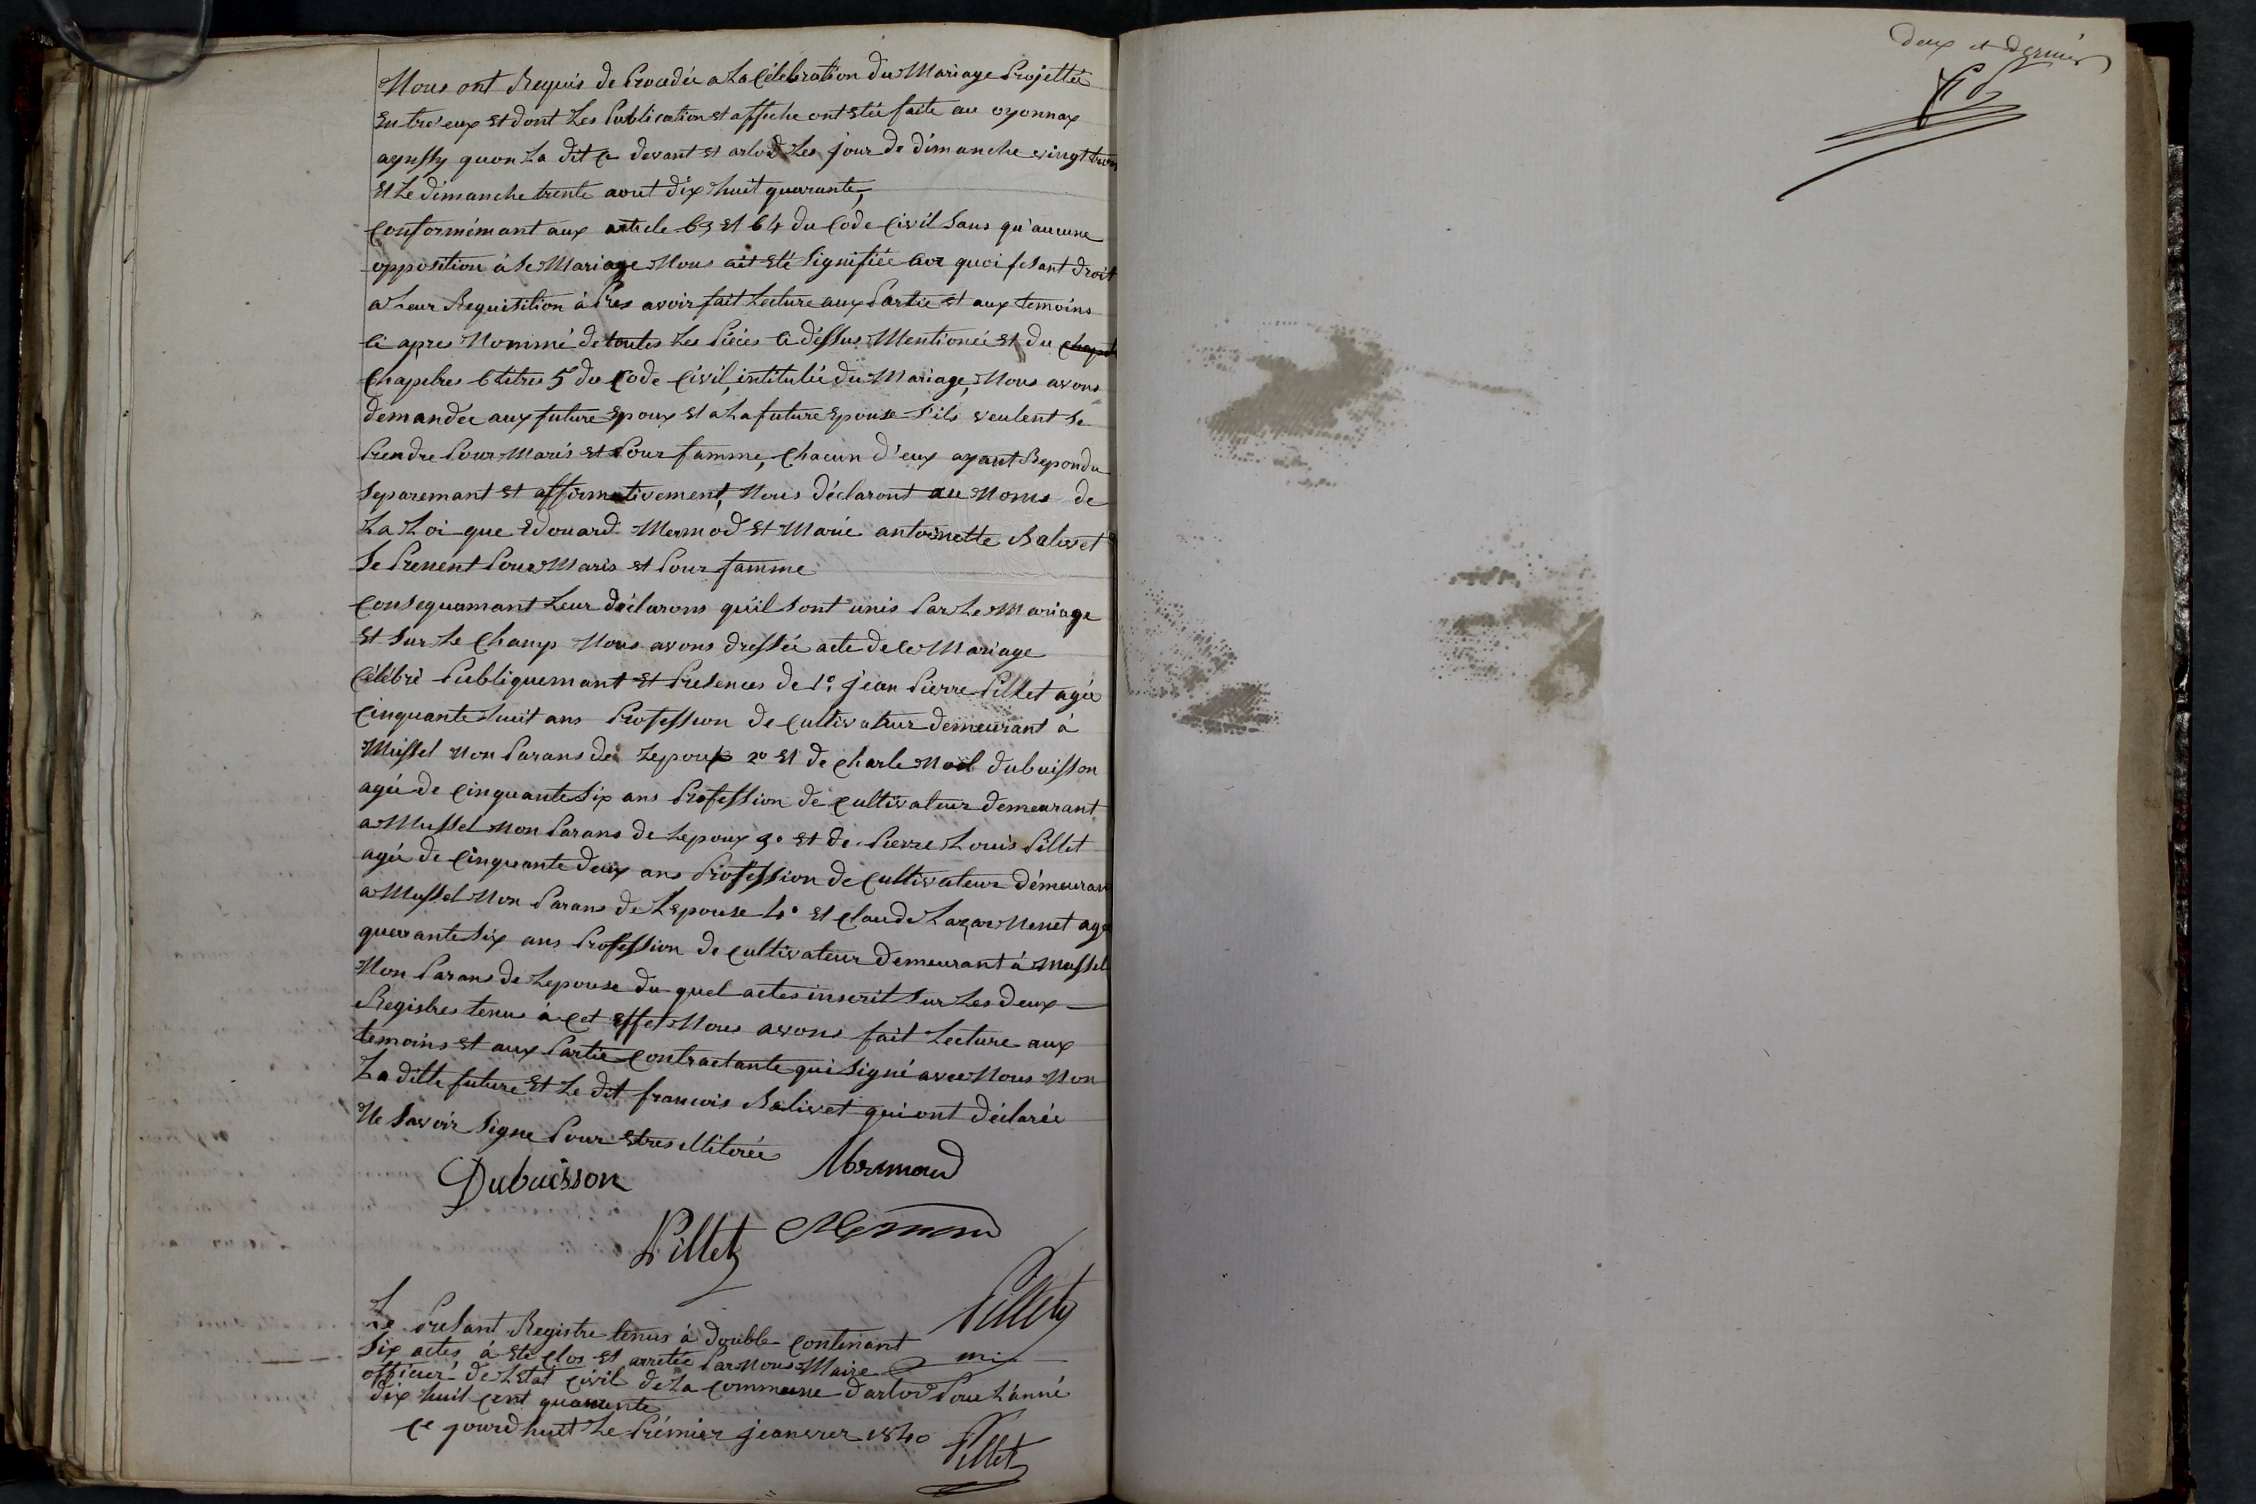 Nous ont Requis de Procedée a La Célébration du Mariage Projettée
Entre'eux Et dont Les Publication Et affiche ont Etée faite au oyonnax
aynssy quon La dit Ce devant Et arlod Les jour de dimanche vingt trois
Et Le dimanche trente aout dix huit quarante,
Conformémant aux article 63 Et 64 du Code Civil Sans qu'aucune
opposition à Se Mariage Nous ait Eté Signifiée quoi fesant droit
a Leur Requisition à Pres avoir fait Lecture aux Partie Et aux temoins
Ci apres Nommé de toutes Les Piéces Ci déssus Mentionée Et du
Chapitres 6 titres 5 du Code Civil, intitulée du Mariage, Nous avons
demandée aux future Epoux Et a La future Epouse S'ils veulent Se
Prendre Pour Maris Et Pour famme, Chacun d'eux ayant Repondu
Separemant Et affirmativement, Nous déclaront au Noms de
La Loi que Edouard Mermod Et Marie antoinette Balivet
Se Prenent Pour Maris Et Pour famme
Consequamant Leur déclarons qu'il Sont unis Par Le Mariage
Et Sur Le Champ Nous avons dressée acte de Ce Mariage
Célébré Publiquemant Et Presences de 1º jean Pierre Pillet agée
Cinquante huit ans Profession de Cultivateur demeurant à
Mussel Non Parans de Lepoux 2º Et de Charle Noel dubuisson
agée de Cinquante Six ans Profession de Cultivateur demeurant
a Mussel Non Parans de Lepoux 3º Et de Pierre Louis Pillet
agée de Cinquante deux ans Profession de Cultivateur démeurant
a Mussel Non Parans de Lepouse 4º Et Claude Lazare Nenet agé
quarante Six ans Profession de Cultivateur demeurant à Mussel
Non Parans de Lepouse du quel actes inscrit Sur Les deux
Registres tenus à Cet Effet Nous avons fait Lecture aux
temoins Et aux Partie Contractante qui Signé avec Nous Non
La ditte future Et Le dit francois Balivet qui ont déclarée
Ne Savoir Signe Pour Etres illiterée
Dubuisson Mermoud
Pillet Mermoud
Pillet
Le Presant Registre tenus à double Contenant
Six actes à Eté Clos Et arretée Par Nous Maire
officier de Letat Civil de La Commune darlod Pour L'anné
dix huit Cent quarante
Ce jourd huit Le Prémier jeanvier 1840
Pillet
deux et dernier